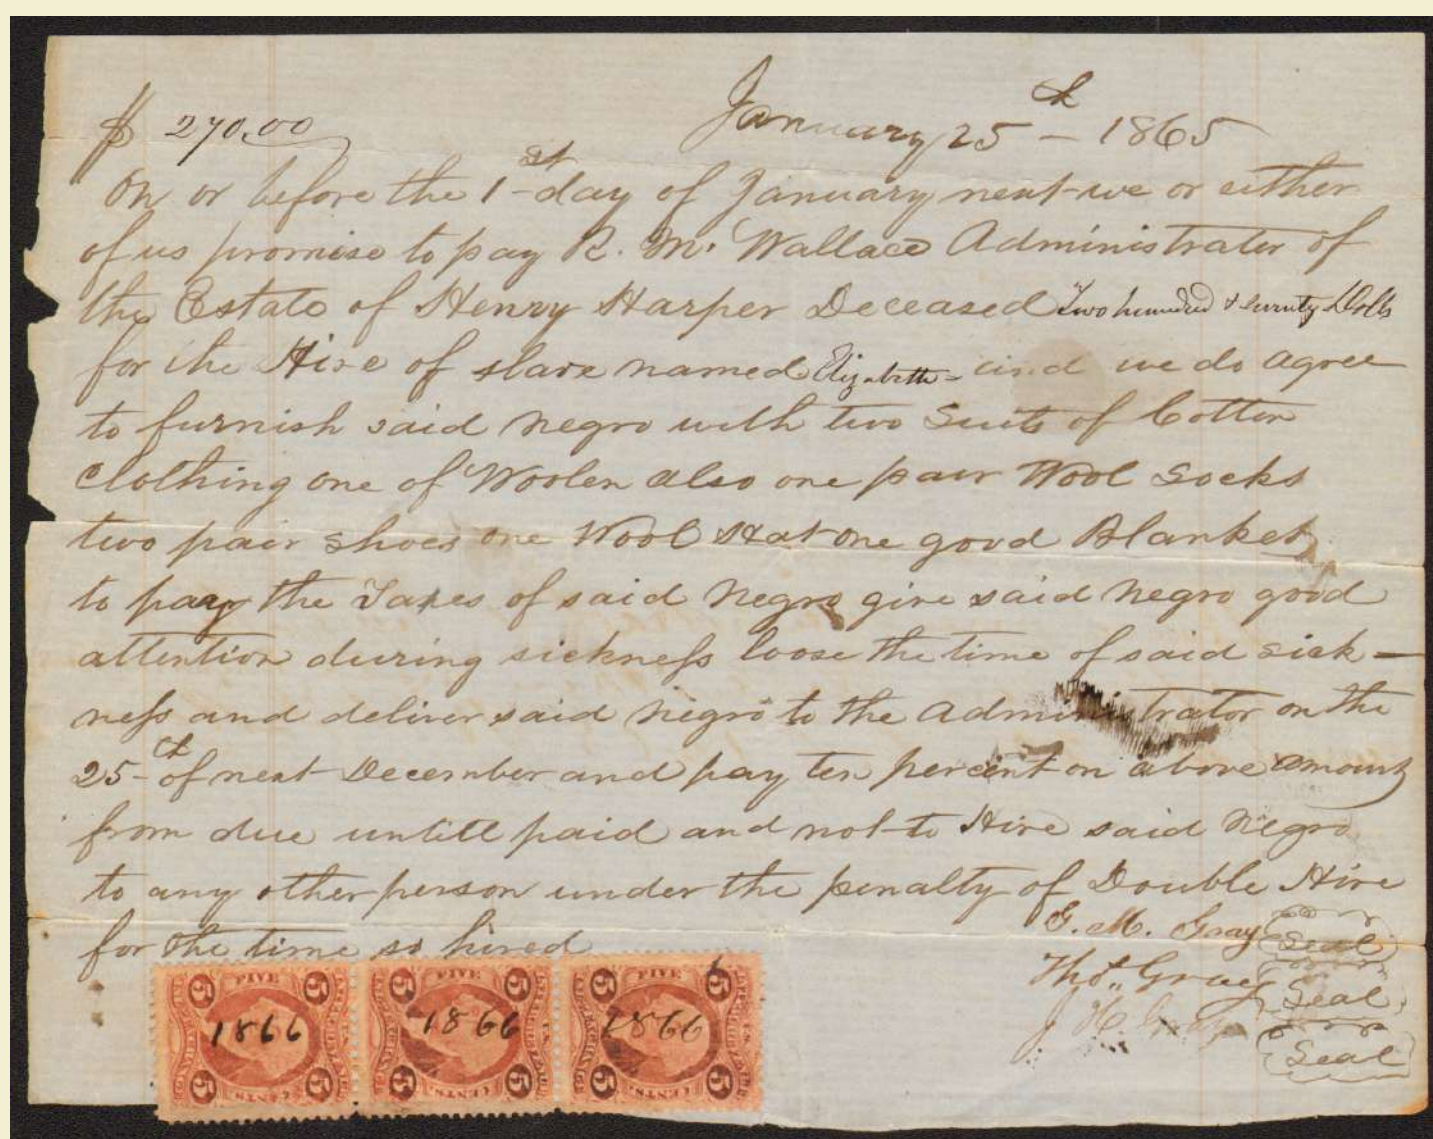 $ 270.00
January 25th 1865
On or before the 1st day of January next we or either
of us promise to pay R. M. Wallace Administrator of
the Estate of Henry Harper Deceased Two hundred & seventy Dolls
for the Hire of slave named Elizabeth - and we do agree
to furnish said negro with two Suits of Cotton
Clothing one of Woolen also one pair Wool Socks
two pair shoes one Wool Hat one good Blanket
to pay the Taxes of said Negro give said Negro good
attention during sickness loose the time of said sick-
ness and deliver said Negro to the Administrator on the
25th of next December and pay ten percent on above amount
from due untill paid and not to Hire said Negro
to any other person under the penalty of Double Hire
for the time so hired
G. M. Gray Seal
Thos. Gray Seal
J H Gray Seal
5 FIVE 5 5 CENTS 5 INTER. REVENUE
5 FIVE 5 5 CENTS 5 INTER. REVENUE
5 FIVE 5 5 CENTS 5
1866 1866 1866